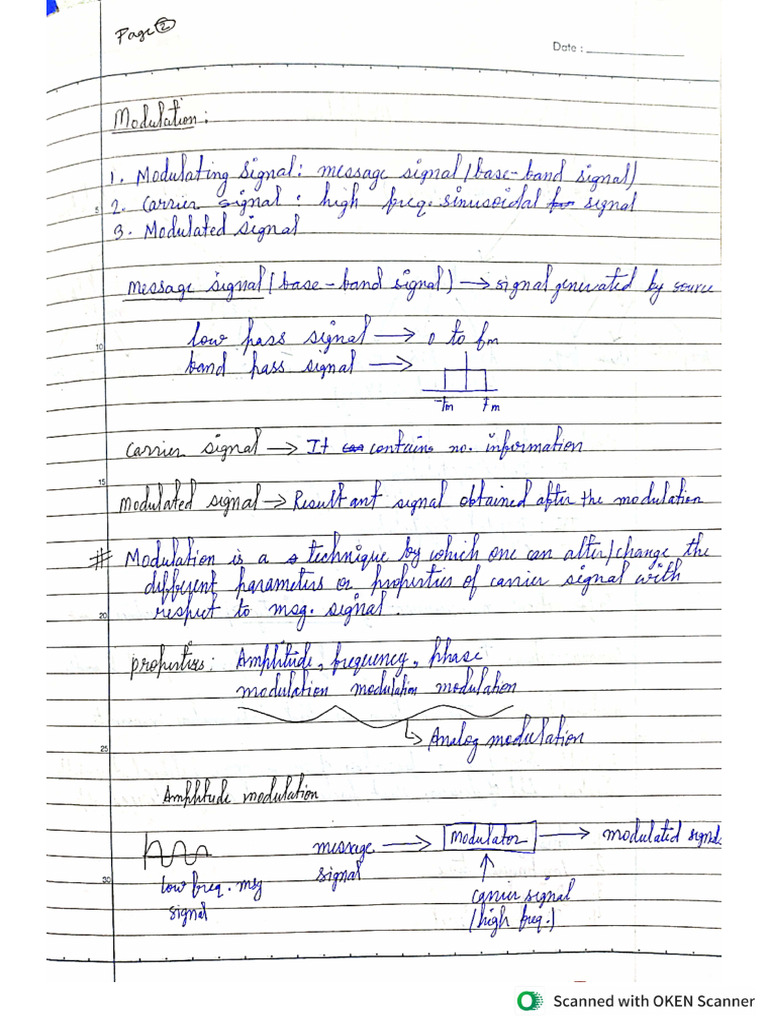 Page ②
Date :
Modulation :
1. Modulating signal : message signal (base-band signal)
2. Carrier signal : high freq. sinusoidal signal
5
3. Modulated signal
message signal (base-band signal) → signal generated by source
low pass signal → 0 to fm
10
band pass signal →
-fm fm
Carrier signal → It contains no. information
15
Modulated signal → Resultant signal obtained after the modulation
# Modulation is a technique by which one can alter/change the
different parameters or properties of carrier signal with
20
respect to msg. signal.
properties: Amplitude, frequency, phase
modulation modulation modulation
25
↳ Analog modulation
Amplitude modulation
message → modulator → modulated signal
signal
30
low freq. msg
signal
carrier signal
(high freq.)
Scanned with OKEN Scanner